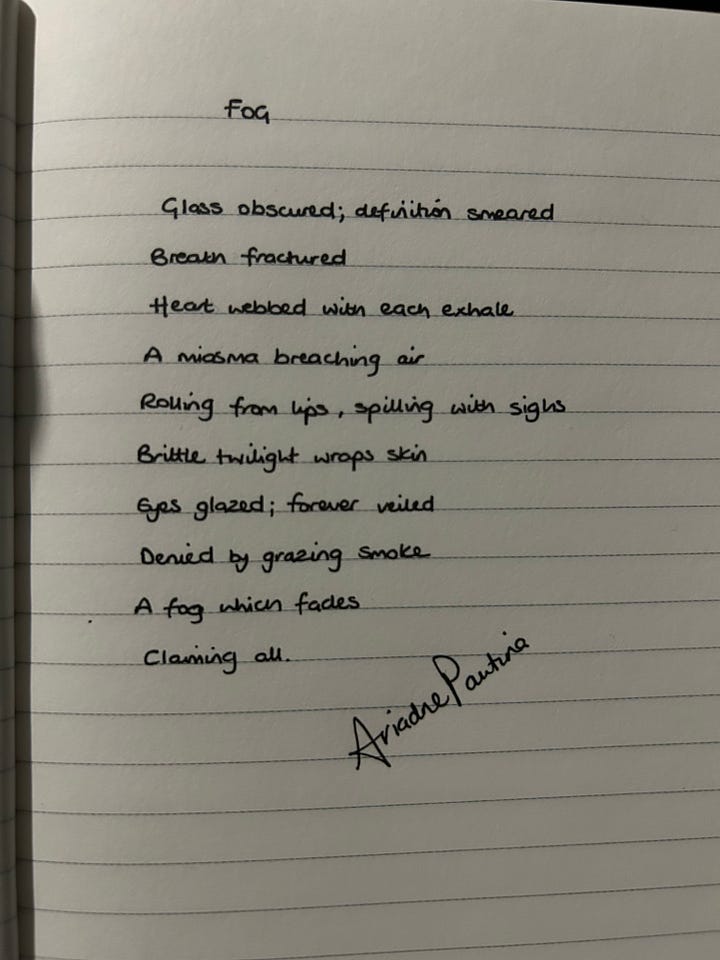 Fog
Glass obscured; definition smeared
Breath fractured
Heart webbed with each exhale
A miasma breaching air
Rolling from lips, spilling with sighs
Brittle twilight wraps skin
Eyes glazed; forever veiled
Denied by grazing smoke
A fog which fades
Claiming all.
Ariadne Pantina